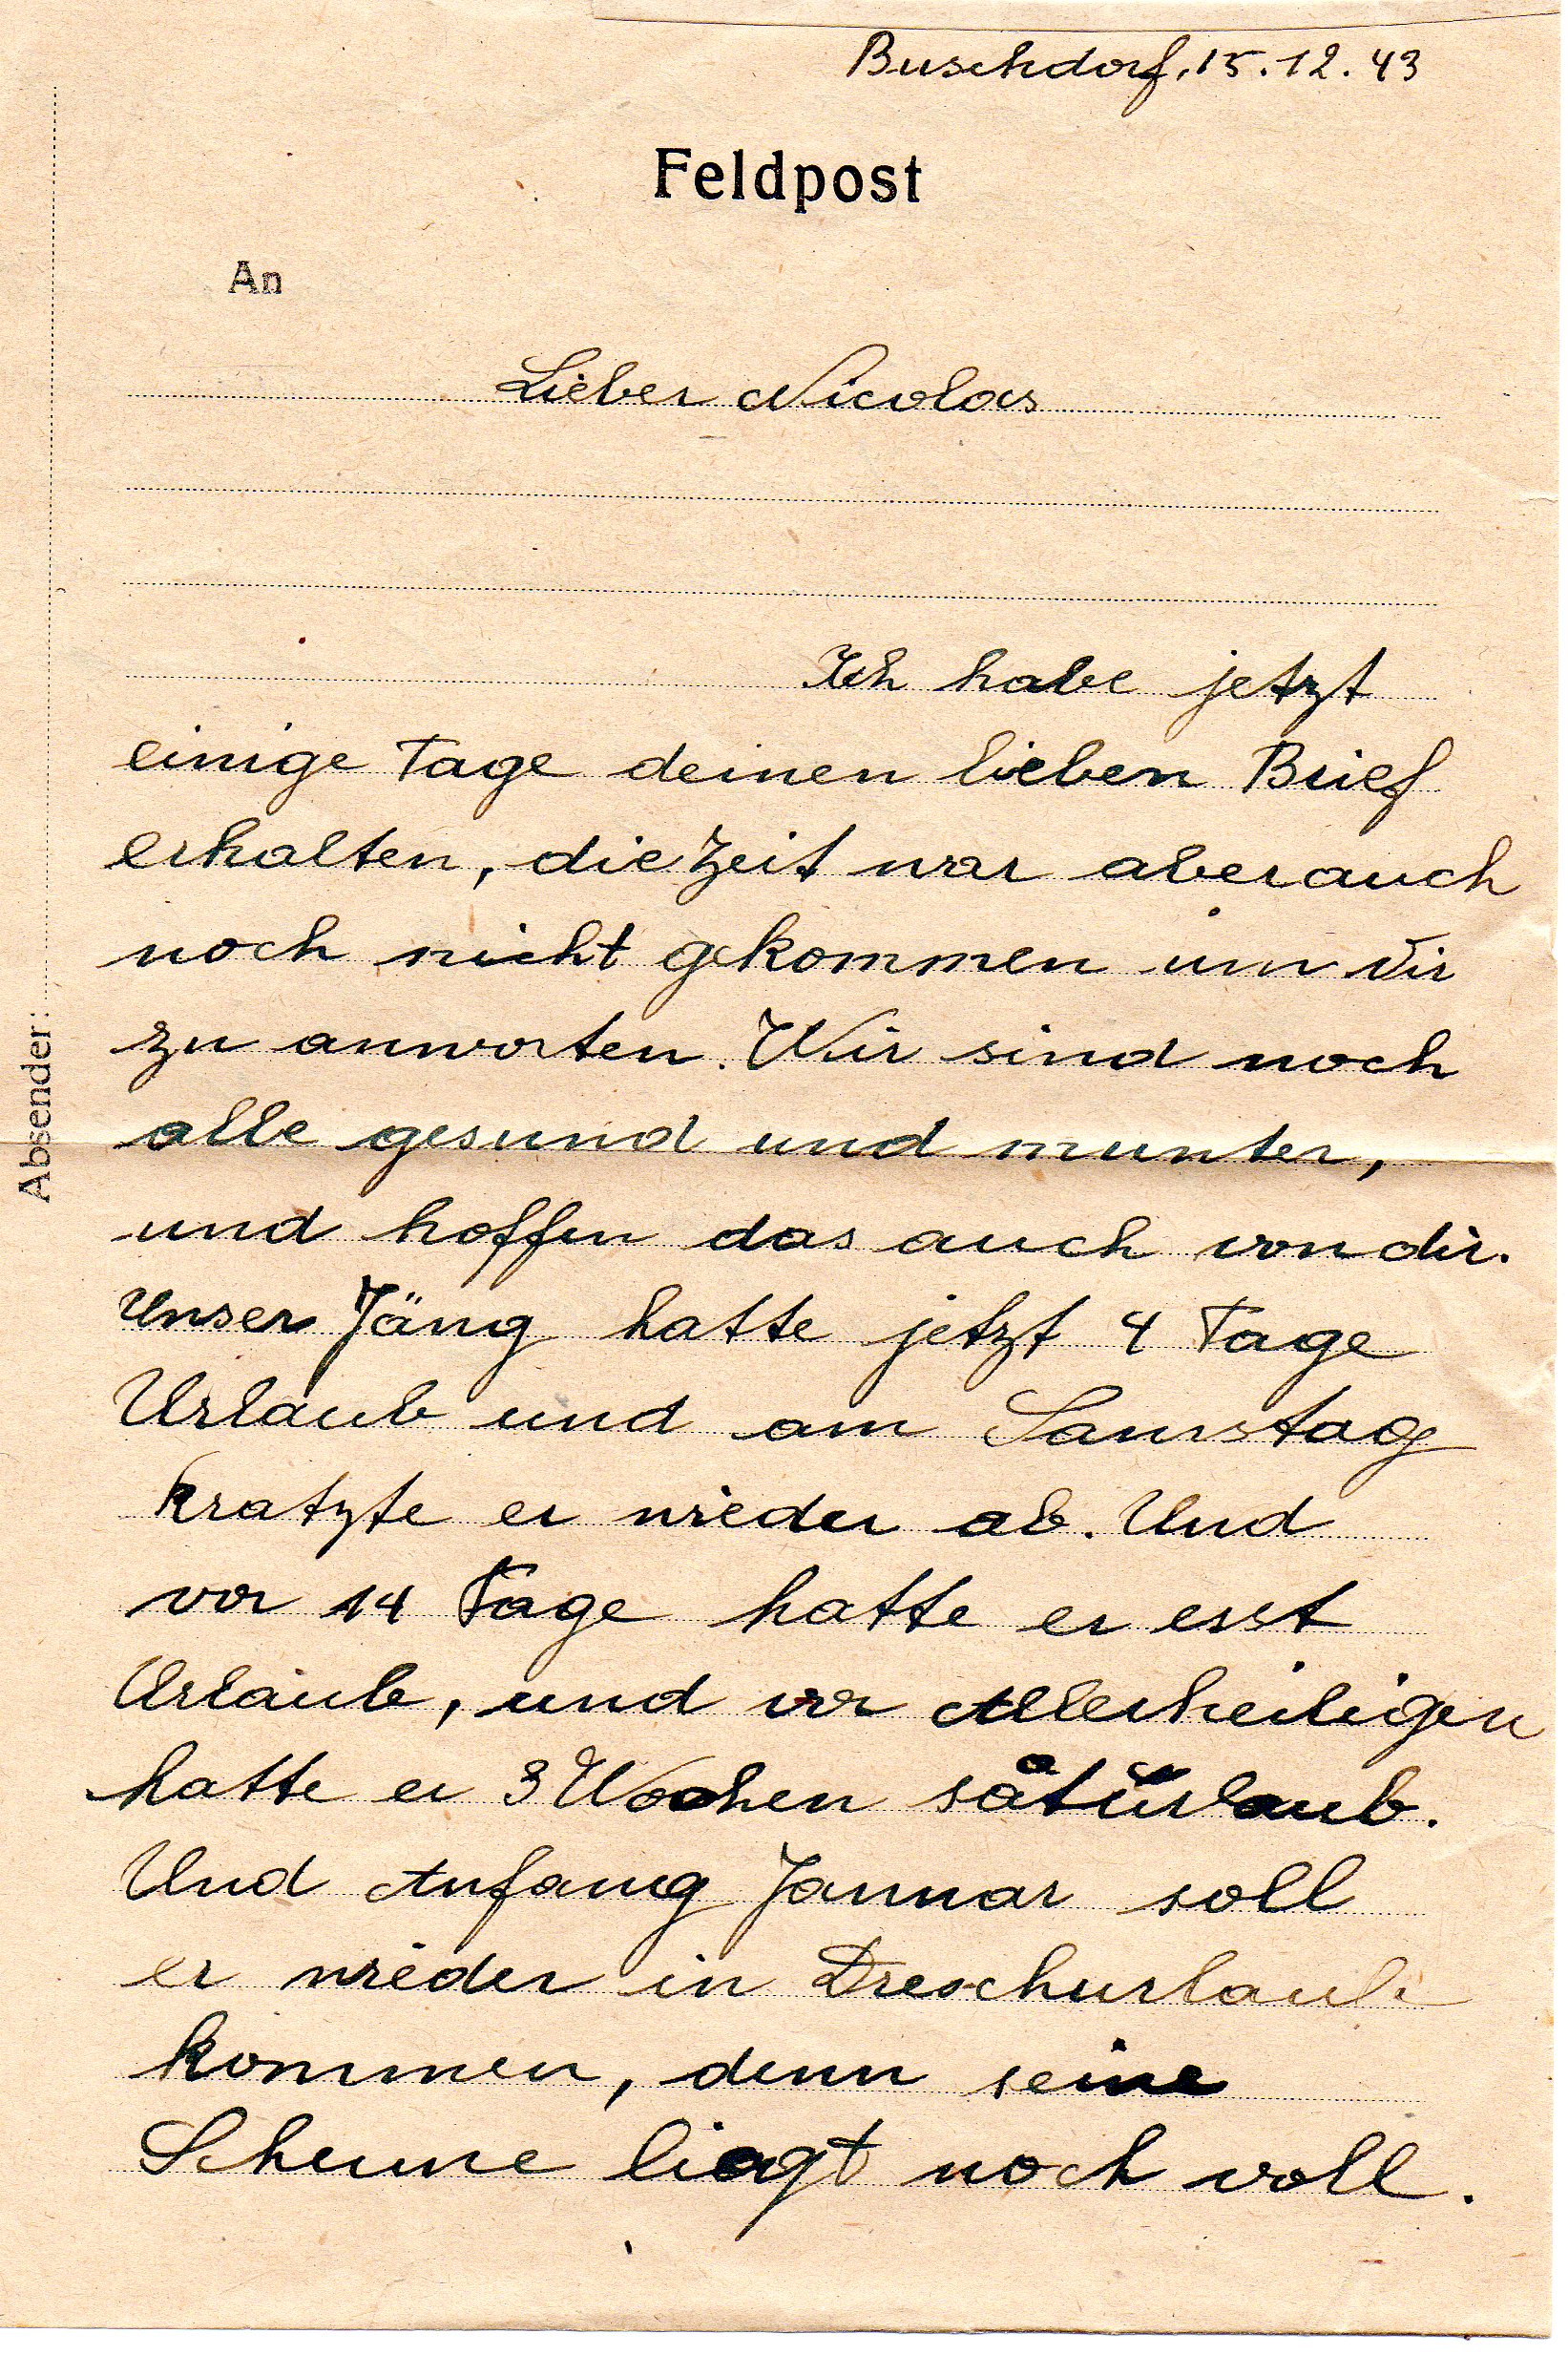 Buschdorf, 15.12.43
Feldpost
An
Lieber Nicolas
Ich habe jetzt
einige Tage deinen lieben Brief
erhalten, die Zeit war aber auch
noch nicht gekommen um dir
zu anworten. Wir sind noch
alle gesund und munter,
und hoffen das auch von dir.
Unser Jäng hatte jetzt 4 Tage
Urlaub und am Samstag
kratzte er wieder ab. Und
vor 14 Tage hatte er erst
Urlaub, und vor Allerheiligen
hatte er 3 Wochen säturlaub.
Und Anfang Januar soll
er wieder in Dreschurlaub
kommen, denn seine
Scheune liegt noch voll.
Absender: